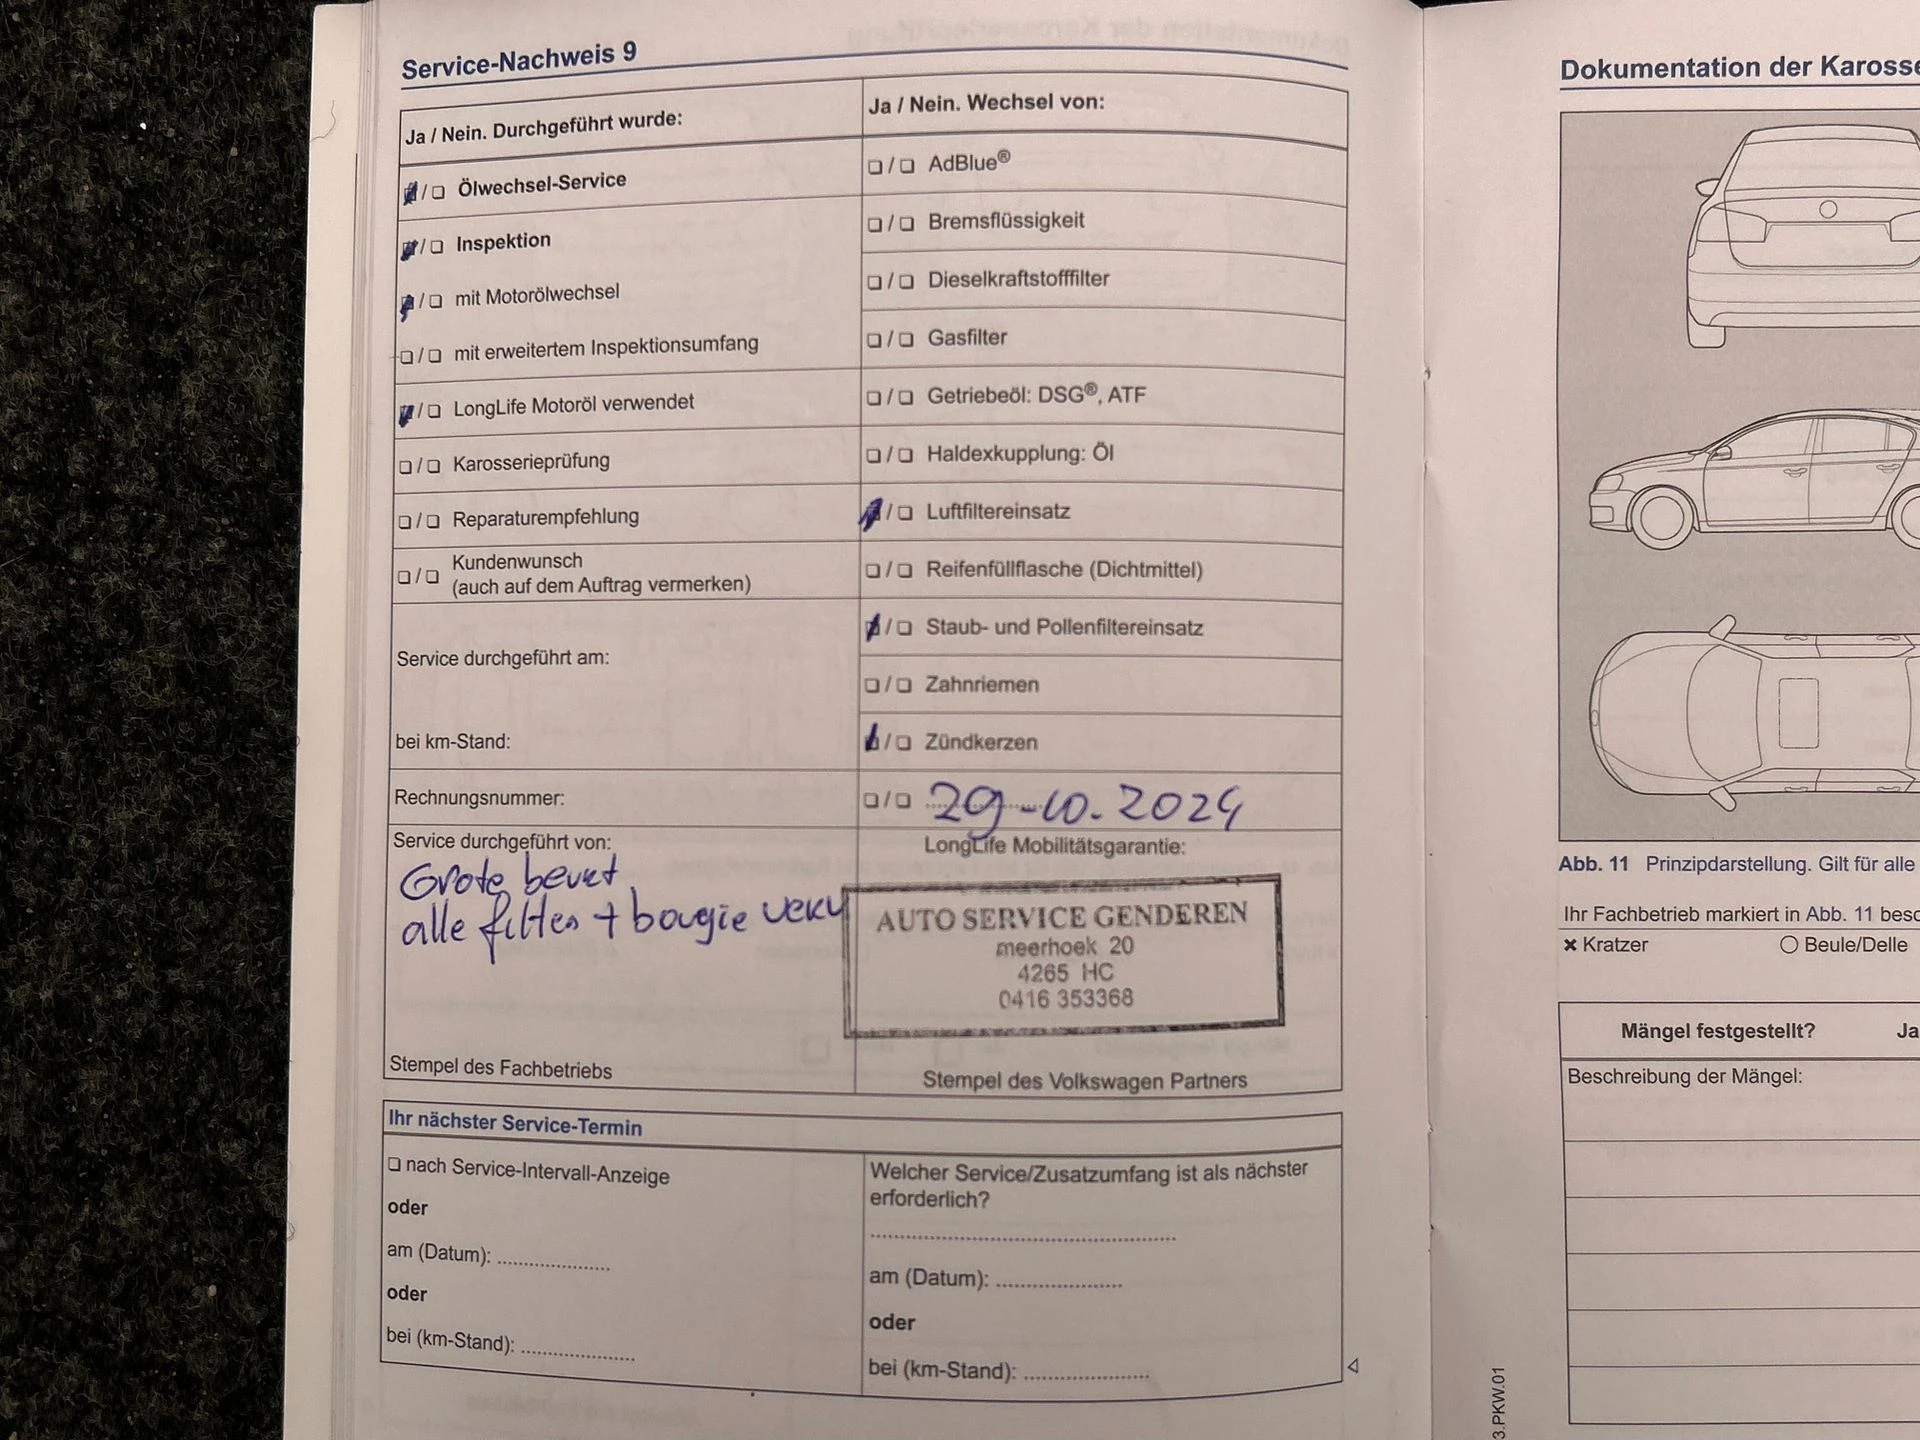 Service-Nachweis 9
Ja / Nein. Durchgeführt wurde:
Ölwechsel-Service
Inspektion
mit Motorölwechsel
mit erweitertem Inspektionsumfang
LongLife Motoröl verwendet
Karosserieprüfung
Reparaturempfehlung
Kundenwunsch
(auch auf dem Auftrag vermerken)
Service durchgeführt am:
bei km-Stand:
Rechnungsnummer:
Service durchgeführt von:
Grote beurt
alle filters + bougie
Stempel des Fachbetriebs
Ja / Nein. Wechsel von:
AdBlue®
Bremsflüssigkeit
Dieselkraftstofffilter
Gasfilter
Getriebeöl: DSG®, ATF
Haldexkupplung: Öl
Luftfiltereinsatz
Reifenfüllflasche (Dichtmittel)
Staub- und Pollenfiltereinsatz
Zahnriemen
Zündkerzen
29-10.2024
LongLife Mobilitätsgarantie:
AUTO SERVICE GENDEREN
meerhoek 20
4265 HC
0416 353368
Stempel des Volkswagen Partners
Ihr nächster Service-Termin
nach Service-Intervall-Anzeige
oder
am (Datum): ....................
oder
bei (km-Stand): ....................
Welcher Service/Zusatzumfang ist als nächster
erforderlich?
am (Datum): ....................
oder
bei (km-Stand): ....................
3.PKW.01
Dokumentation der Karosse
Abb. 11 Prinzipdarstellung. Gilt für alle
Ihr Fachbetrieb markiert in Abb. 11 besc
× Kratzer
Beule/Delle
Mängel festgestellt? Ja
Beschreibung der Mängel: